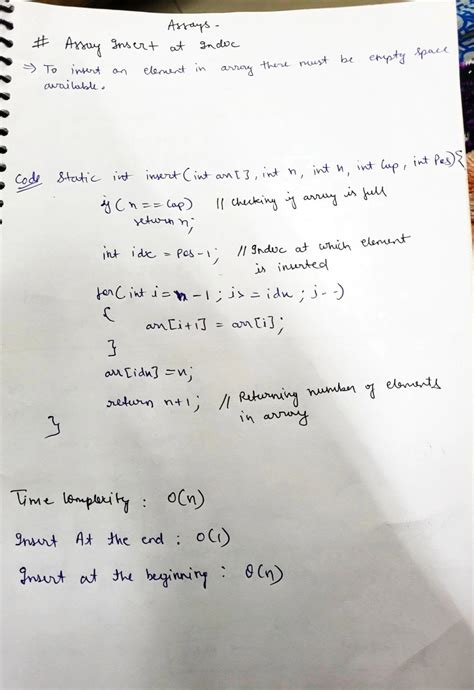 Arrays -
# Array Insert at Index
⇒ To insert an element in array there must be empty space
available.
Code Static int insert(int arr[], int n, int x, int Cap, int Pos){
if(n == Cap) // Checking if array is full
return n;
int idx = Pos-1; // Index at which element
is inserted
for(int i=n-1; i>=idx; i--)
{
arr[i+1] = arr[i];
}
arr[idx] = x;
return n+1; // Returning number of elements
in array
}
Time Complexity : O(n)
Insert At the end : O(1)
Insert at the beginning : θ(n)